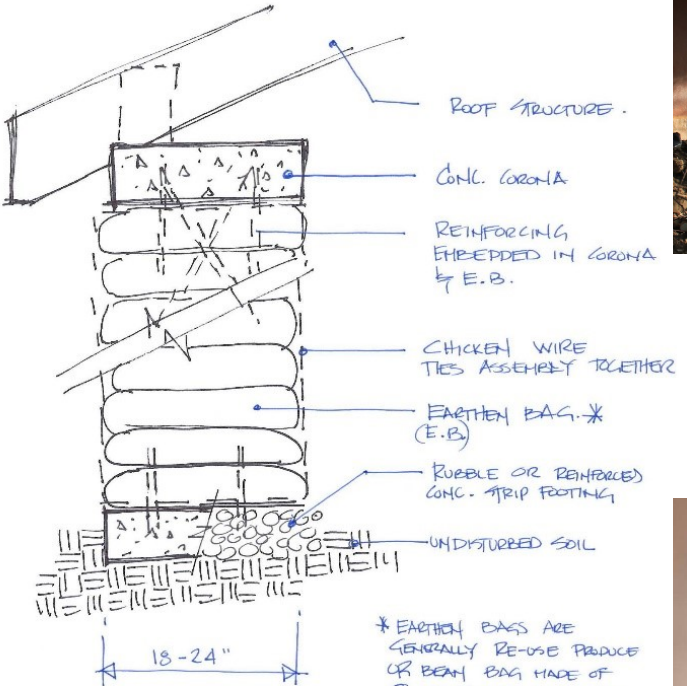 ROOF STRUCTURE.
CONC. CORONA
REINFORCING
EMBEDDED IN CORONA
& E.B.
CHICKEN WIRE
TIES ASSEMBLY TOGETHER
EARTHEN BAG. *
(E.B)
RUBBLE OR REINFORCED
CONC. STRIP FOOTING
UNDISTURBED SOIL
18-24"
* EARTHEN BAGS ARE
GENERALLY RE-USE PRODUCE
OR BEAN BAG MADE OF